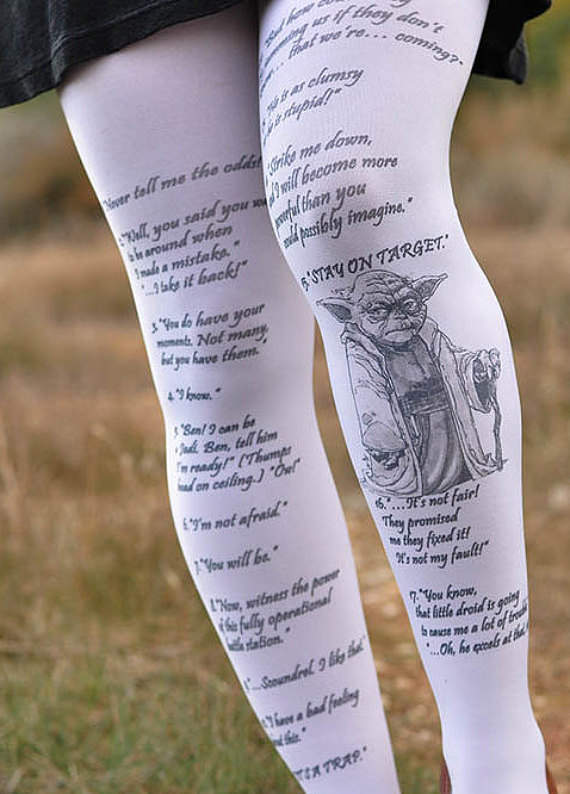 Never tell me the odds!
"Well, you said you
to be around when
I made a mistake."
"...I take it back!"
3. "You do have your
moments. Not many,
but you have them."
4. "I know."
5. "Ben! I can be
a Jedi. Ben, tell him
I'm ready!" (Thumps
head on ceiling.) "Ow!"
6. "I'm not afraid."
7. "You will be."
8. "Now, witness the power
of this fully operational
battle station."
"...Scoundrel. I like that."
"I have a bad feeling
this."
IT'S A TRAP."
"But how
jamming us if they don't
that we're... coming?"
is as clumsy
is stupid!"
"Strike me down,
and I will become more
powerful than you
could possibly imagine."
15. "STAY ON TARGET."
16. "...It's not fair!
They promised
me they fixed it!
It's not my fault!"
17. "You know,
that little droid is going
to cause me a lot of trouble."
"...Oh, he excels at that,